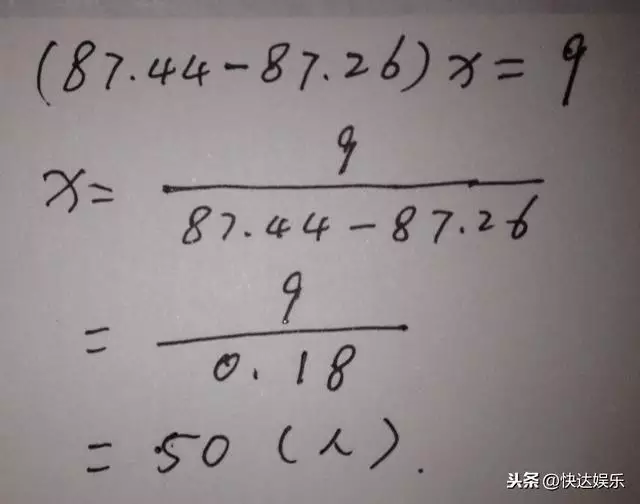 (87.44-87.26)x=9
x= 9
87.44-87.26
= 9
0.18
=50(人).
头条@快达娱乐